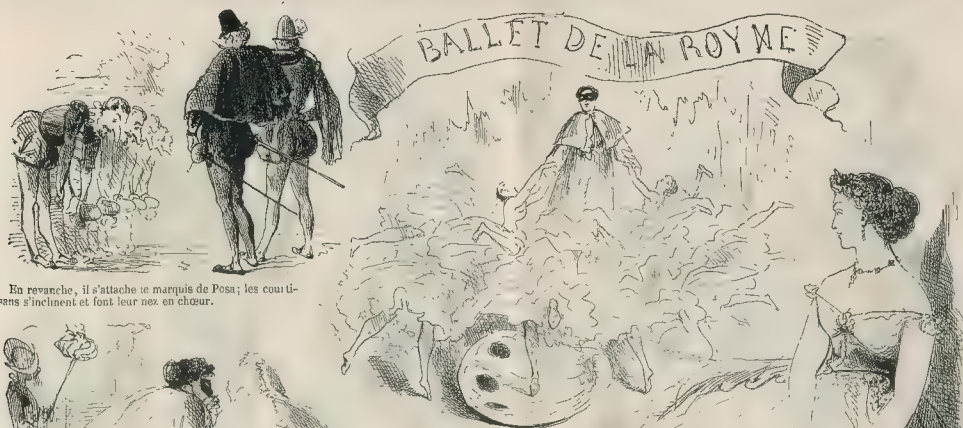 BALLET DE LA ROYNE
En revanche, il s'attache le marquis de Posa; les courti-
sans s'inclinent et font leur nez en chœur.